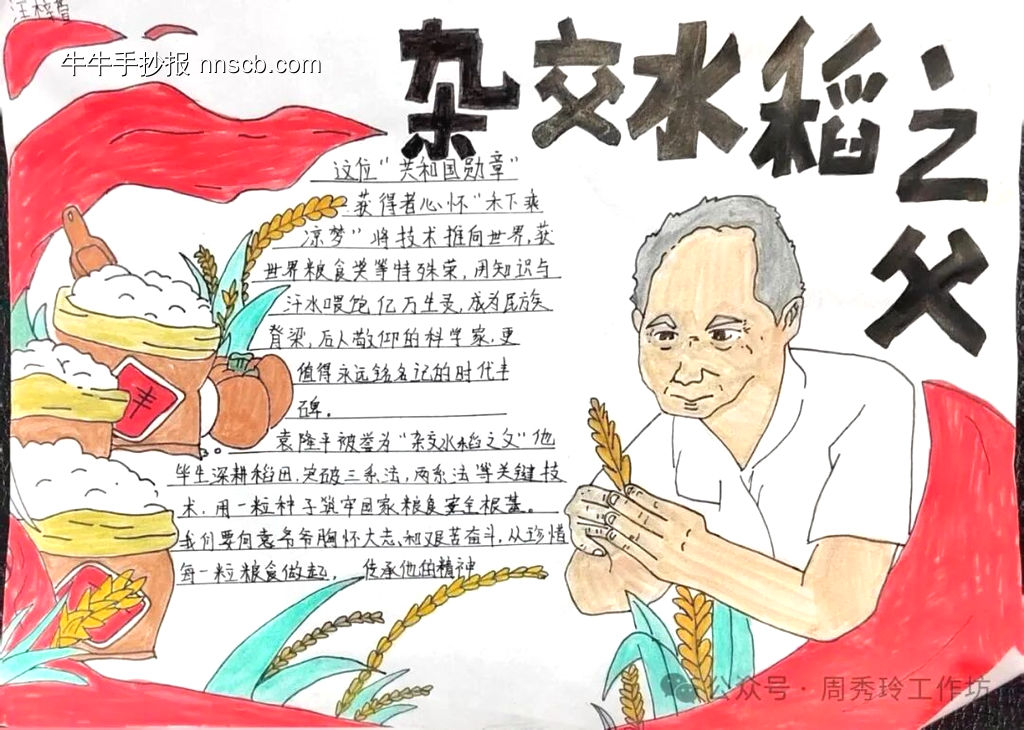 牛牛手抄报 nnscb.com
杂交水稻之父
这位“共和国勋章”
获得者心怀“禾下乘
凉梦”将技术推向世界,获
世界粮食奖等特殊荣,用知识与
汗水喂饱亿万生灵,成为民族
脊梁,后人敬仰的科学家,更
值得永远铭记的时代丰
碑。
袁隆平被誉为“杂交水稻之父”他
毕生深耕稻田,突破三系法,两系法等关键技
术,用一粒种子筑牢国家粮食安全根基。
我们要向袁爷爷胸怀大志、和艰苦奋斗,从珍惜
每一粒粮食做起, 传承他的精神
丰
公众号·周秀玲工作坊